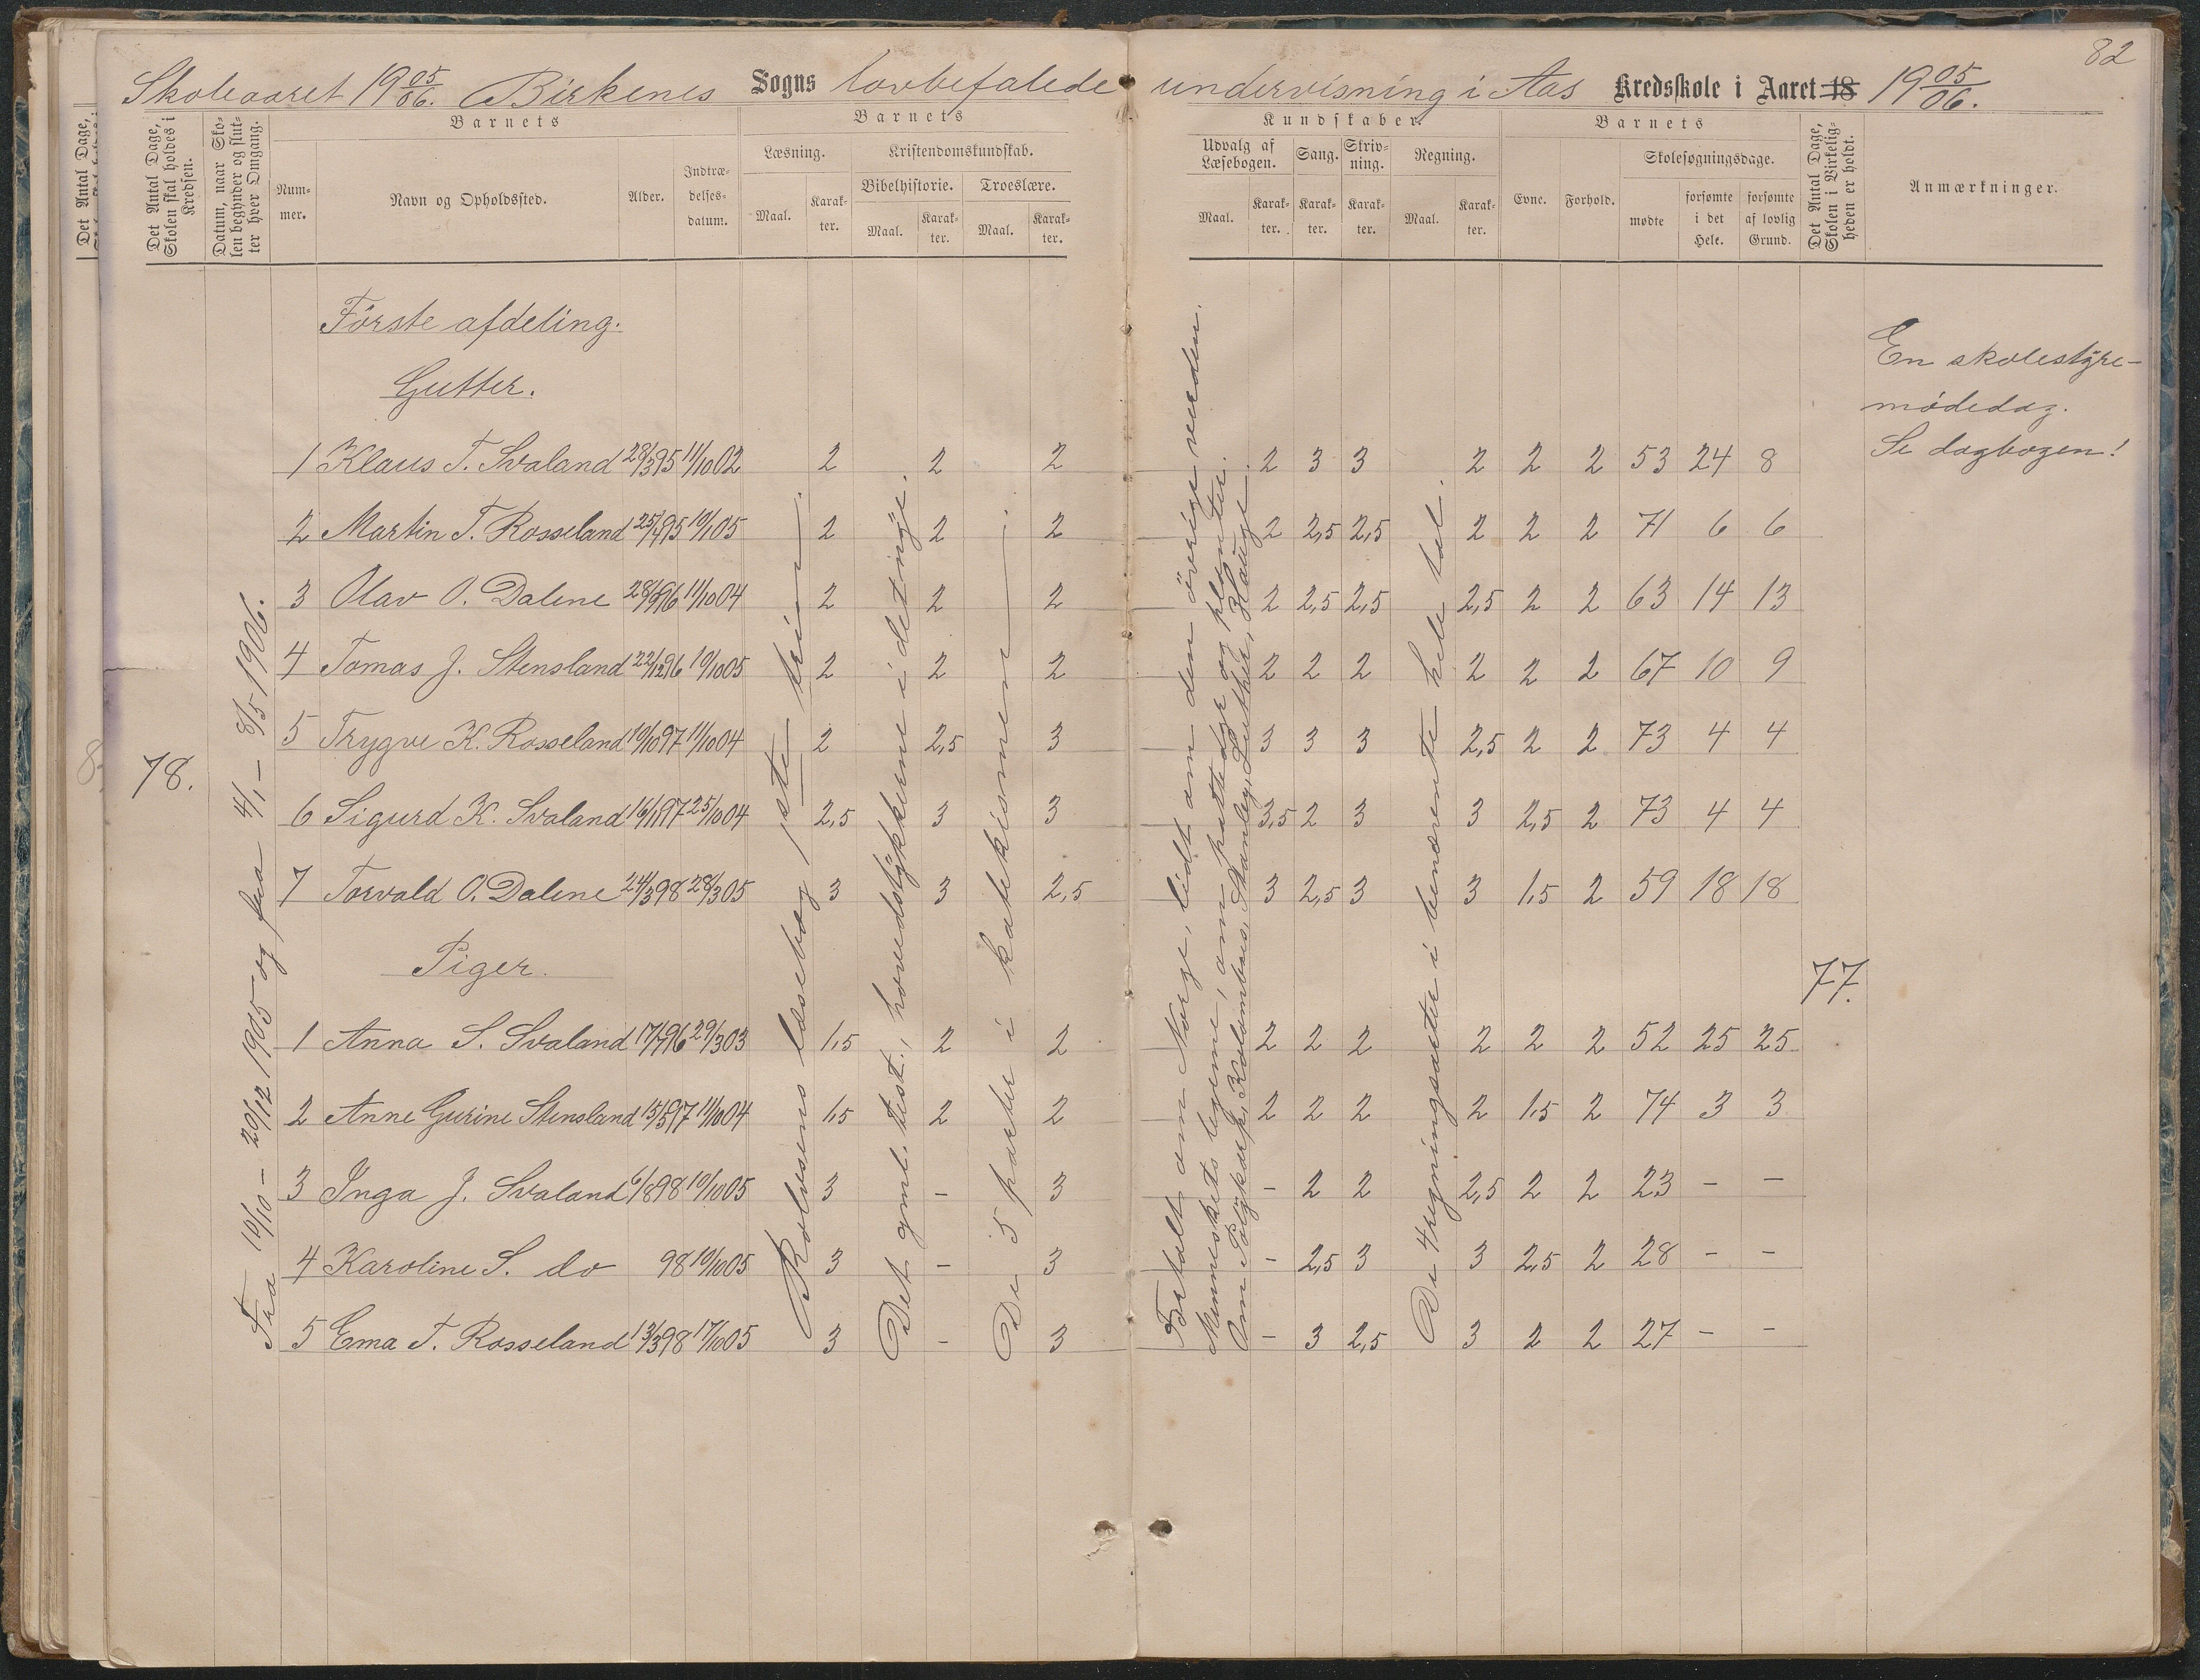 82
Skoleaaret 19 05/06. Birkenes Sogns lovbefalede undervisning i Aas Kredsskole i Aaret 18 19 05/06.
Det Antal Dage,
Det Antal Dage, Skolen skal holdes i Kredsen.
Datum, naar Skolen begynder og slutter hver Omgang.
Barnets
Nummer.
Navn og Opholdssted.
Alder.
Indtrædelsesdatum.
Barnets
Læsning.
Maal.
Karakter.
Kristendomskundskab.
Bibelhistorie.
Maal.
Karakter.
Troeslære.
Maal.
Karakter.
Kundskaber.
Udvalg af Læsebogen.
Maal.
Karakter.
Sang.
Karakter.
Skrivning.
Karakter.
Regning.
Maal.
Karakter.
Barnets
Evne.
Forhold.
Skolesøgningsdage.
mødte
forsømte i det Hele.
forsømte af lovlig Grund.
Det Antal Dage, Skolen i Virkeligheden er holdt.
Anmærkninger.
78.
Fra 10/10 – 20/12 1905 og fra 4/1 – 8/5 1906.
Første afdeling.
Gutter.
1 Klaus T. Svaland 28/3 95 11/10 02 2 2 2 2 3 3 2 2 2 53 24 8
2 Martin T. Rosseland 10/1 05 2 2 2 2 2,5 2,5 2 2 2 71 6 6
3 Olav O. Dalene 11/10 04 2 2 2 2 2,5 2,5 2,5 2 2 63 14 13
4 Tomas J. Stensland 22/12 96 10/10 05 2 2 2 2 2 2 2 2 2 67 10 9
5 Trygve K. Rosseland 10/10 97 11/10 04 2 2,5 3 3 3 3 2,5 2 2 73 4 4
6 Sigurd K. Svaland 25/10 04 2,5 3 3 3,5 2 3 3 2,5 2 73 4 4
7 Torvald O. Dalene 24/3 98 28/3 05 3 3 2,5 3 2,5 3 3 1,5 2 59 18 18
Piger.
1 Anna S. Svaland 17/7 96 29/3 03 1,5 2 2 2 2 2 2 2 2 52 25 25
2 Anne Gurine Stensland 11/10 04 1,5 2 2 2 2 2 2 1,5 2 74 3 3
3 Inga J. Svaland 6/8 98 10/10 05 3 – 3 – 2 2 2,5 2 2 23 – –
4 Karoline S. do 98 10/10 05 3 – 3 – 2,5 3 3 2,5 2 28 – –
5 Ema T. Rosseland 13/3 98 17/10 05 3 – 3 – 3 2,5 3 2 2 27 – –
Rolvsens læsebog 1ste trin.
Det gml. test., hovedstykkerne i det nye.
De 5 parter i katekismen.
Fortalt om Norge, lidt om den øvrige verden.
Menneskets legeme, om patte dyr og planter.
Om Polykarp, Kolumbus, Stanley, Luther, Hauge.
De 4 regningsarter i benævnte hele tal.
77.
En skolestyre-
mødedag.
Se dagbogen!